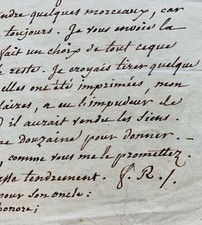 ndre quelques morceaux, car
toujours. Je vous envoie la
fait un choix de tout ceque
reste. Je croyais tirer quelque
elles ont été imprimées, mon
laires, a eu l'impudeur de
il aurait vendu les siens.
e douzaine pour donner. —
, comme vous me le promettez.
tendrement. f. R. f.
pour son oncle:
honore;